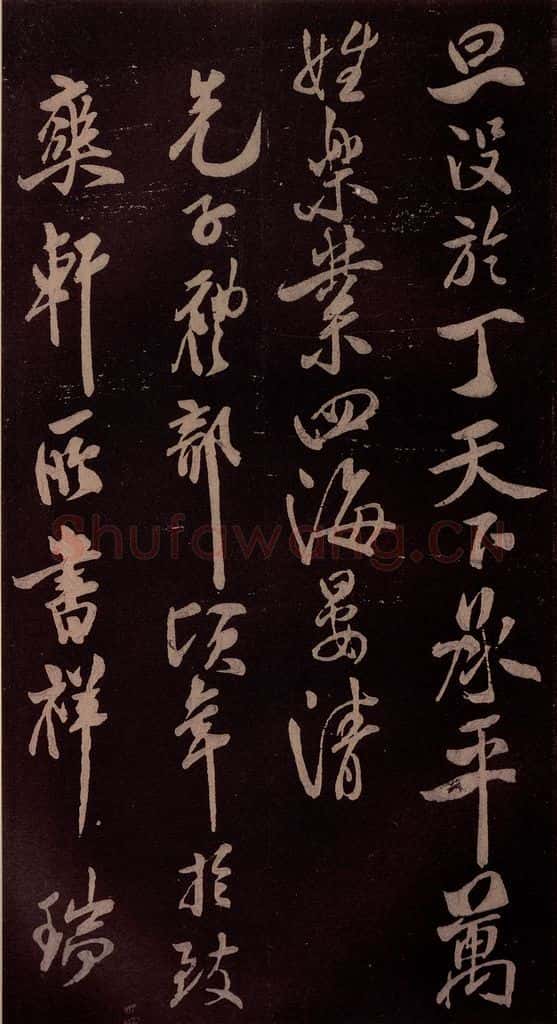 旦没於丁天下承平萬
姓樂業四海晏清
先子禮部頃年於致
爽軒所書祥瑞
Shufawang.CN